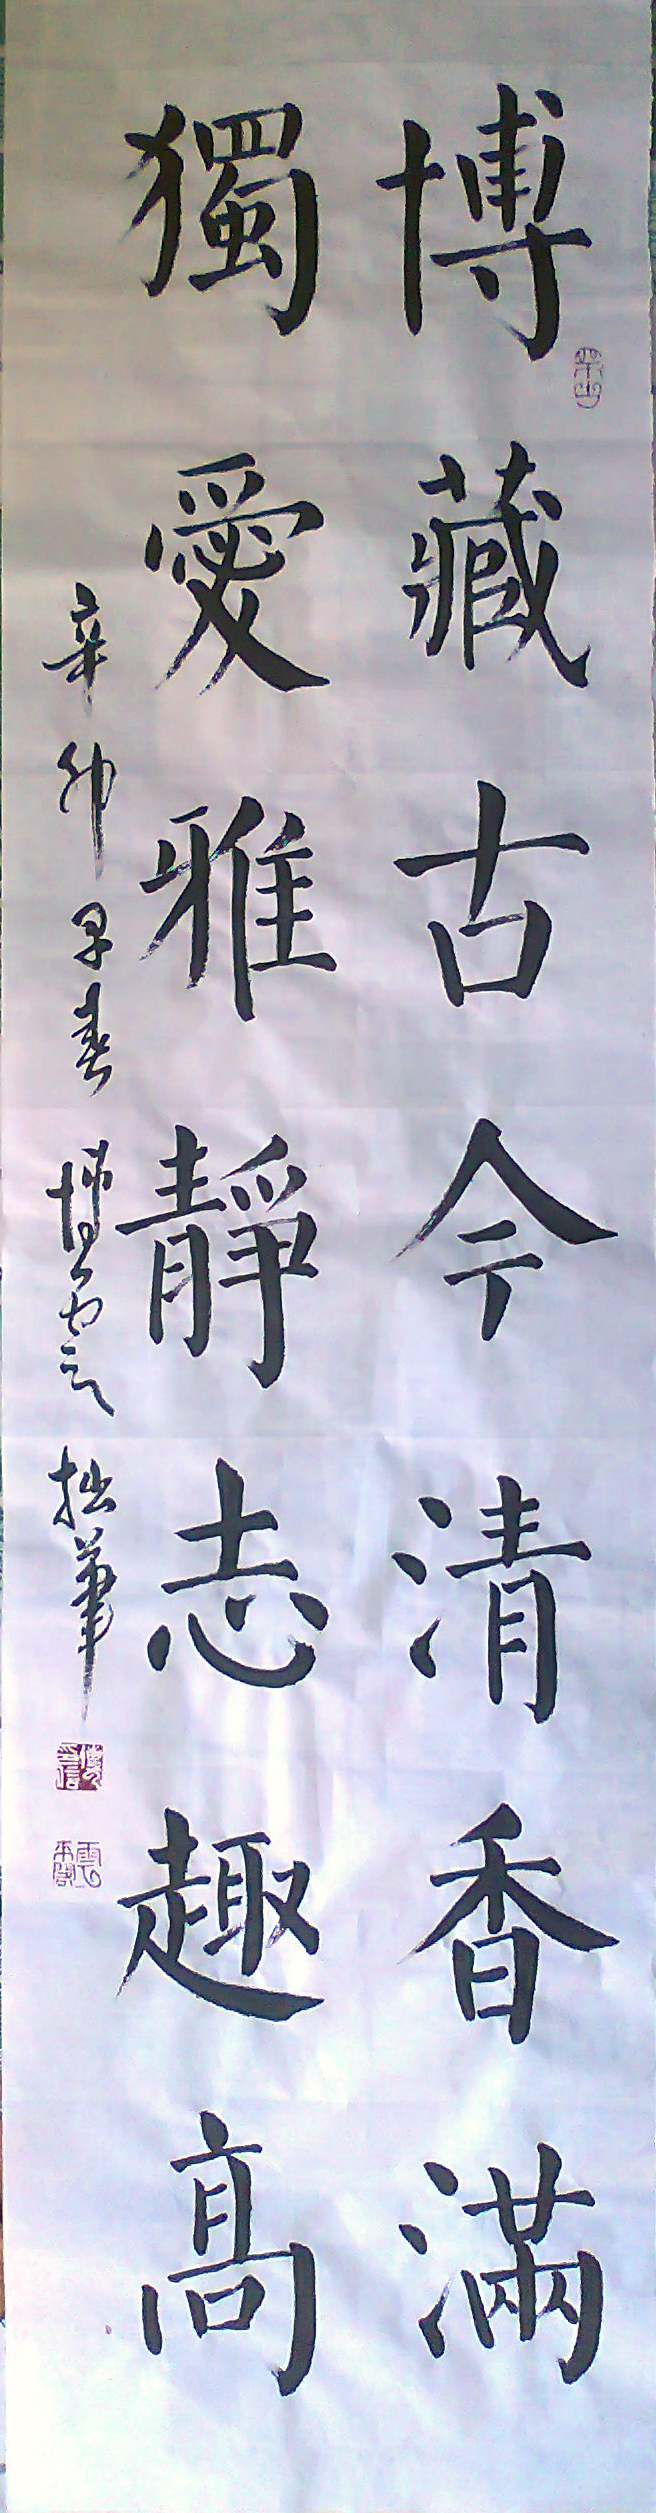 博藏古今清香滿
獨愛雅靜志趣高
辛卯早春 博雲 拙筆